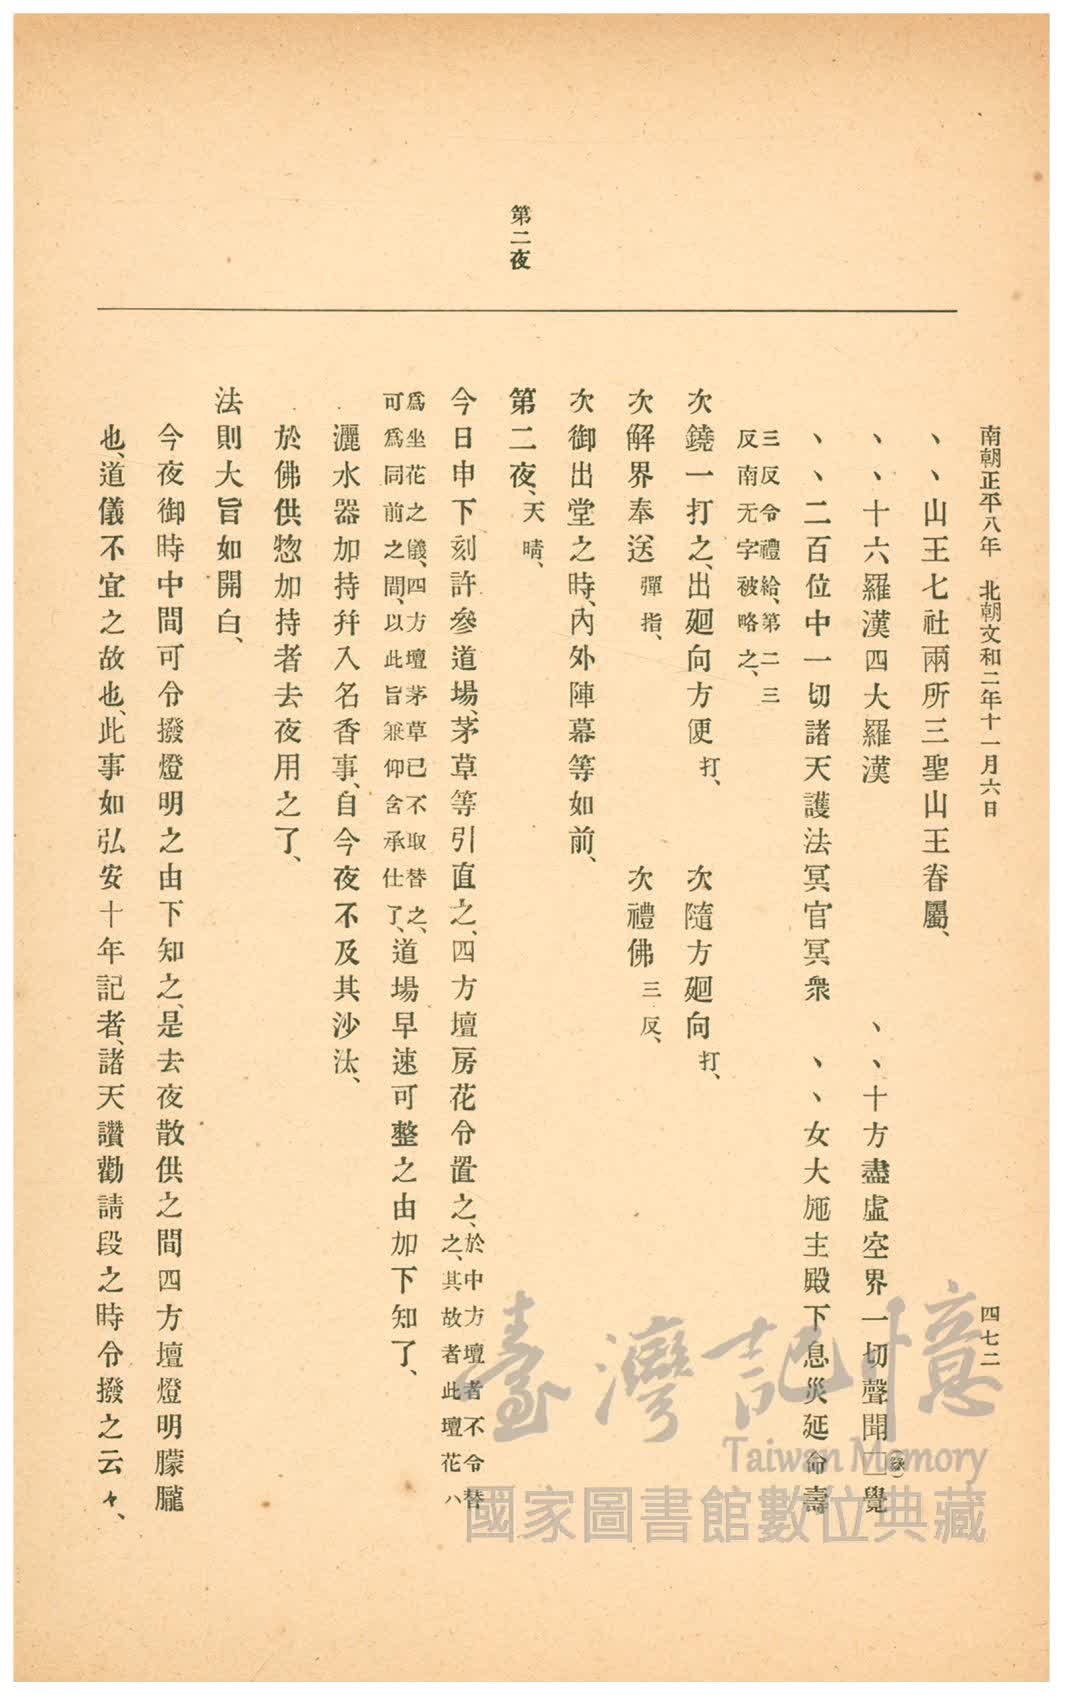 南朝正平八年　北朝文和二年十一月六日
四七二
第二夜
、、山王七社兩所三聖山王眷屬、
、、十六羅漢四大羅漢　、、十方盡虛空界一切聲聞□覺
(緣)
、、二百位中一切諸天護法冥官冥衆　、、女大施主殿下息災延命壽
三反令禮給、第二三
反南无字被略之、
次鐃一打之、出廻向方便 打、　次隨方廻向 打、
次解界奉送 彈指、　次禮佛 三反、
次御出堂之時、內外陣幕等如前、
第二夜、天晴、
今日申下刻許參道場、茅草等引直之、四方壇房花令置之、於中方壇者不令替
之、其故者此壇花ハ
爲坐花之儀、四方壇茅草已不取替之、
可爲同前之間、以此旨兼仰含承仕了、道場早速可整之由加下知了、
灑水器加持幷入名香事、自今夜不及其沙汰、
於佛供惣加持者去夜用之了、
法則大旨如開白、
今夜御時中間可令撥燈明之由下知之、是去夜散供之間四方壇燈明朦朧
也、道儀不宜之故也、此事如弘安十年記者、諸天讚勸請段之時令撥之云々、
臺灣記憶
Taiwan Memory
國家圖書館數位典藏